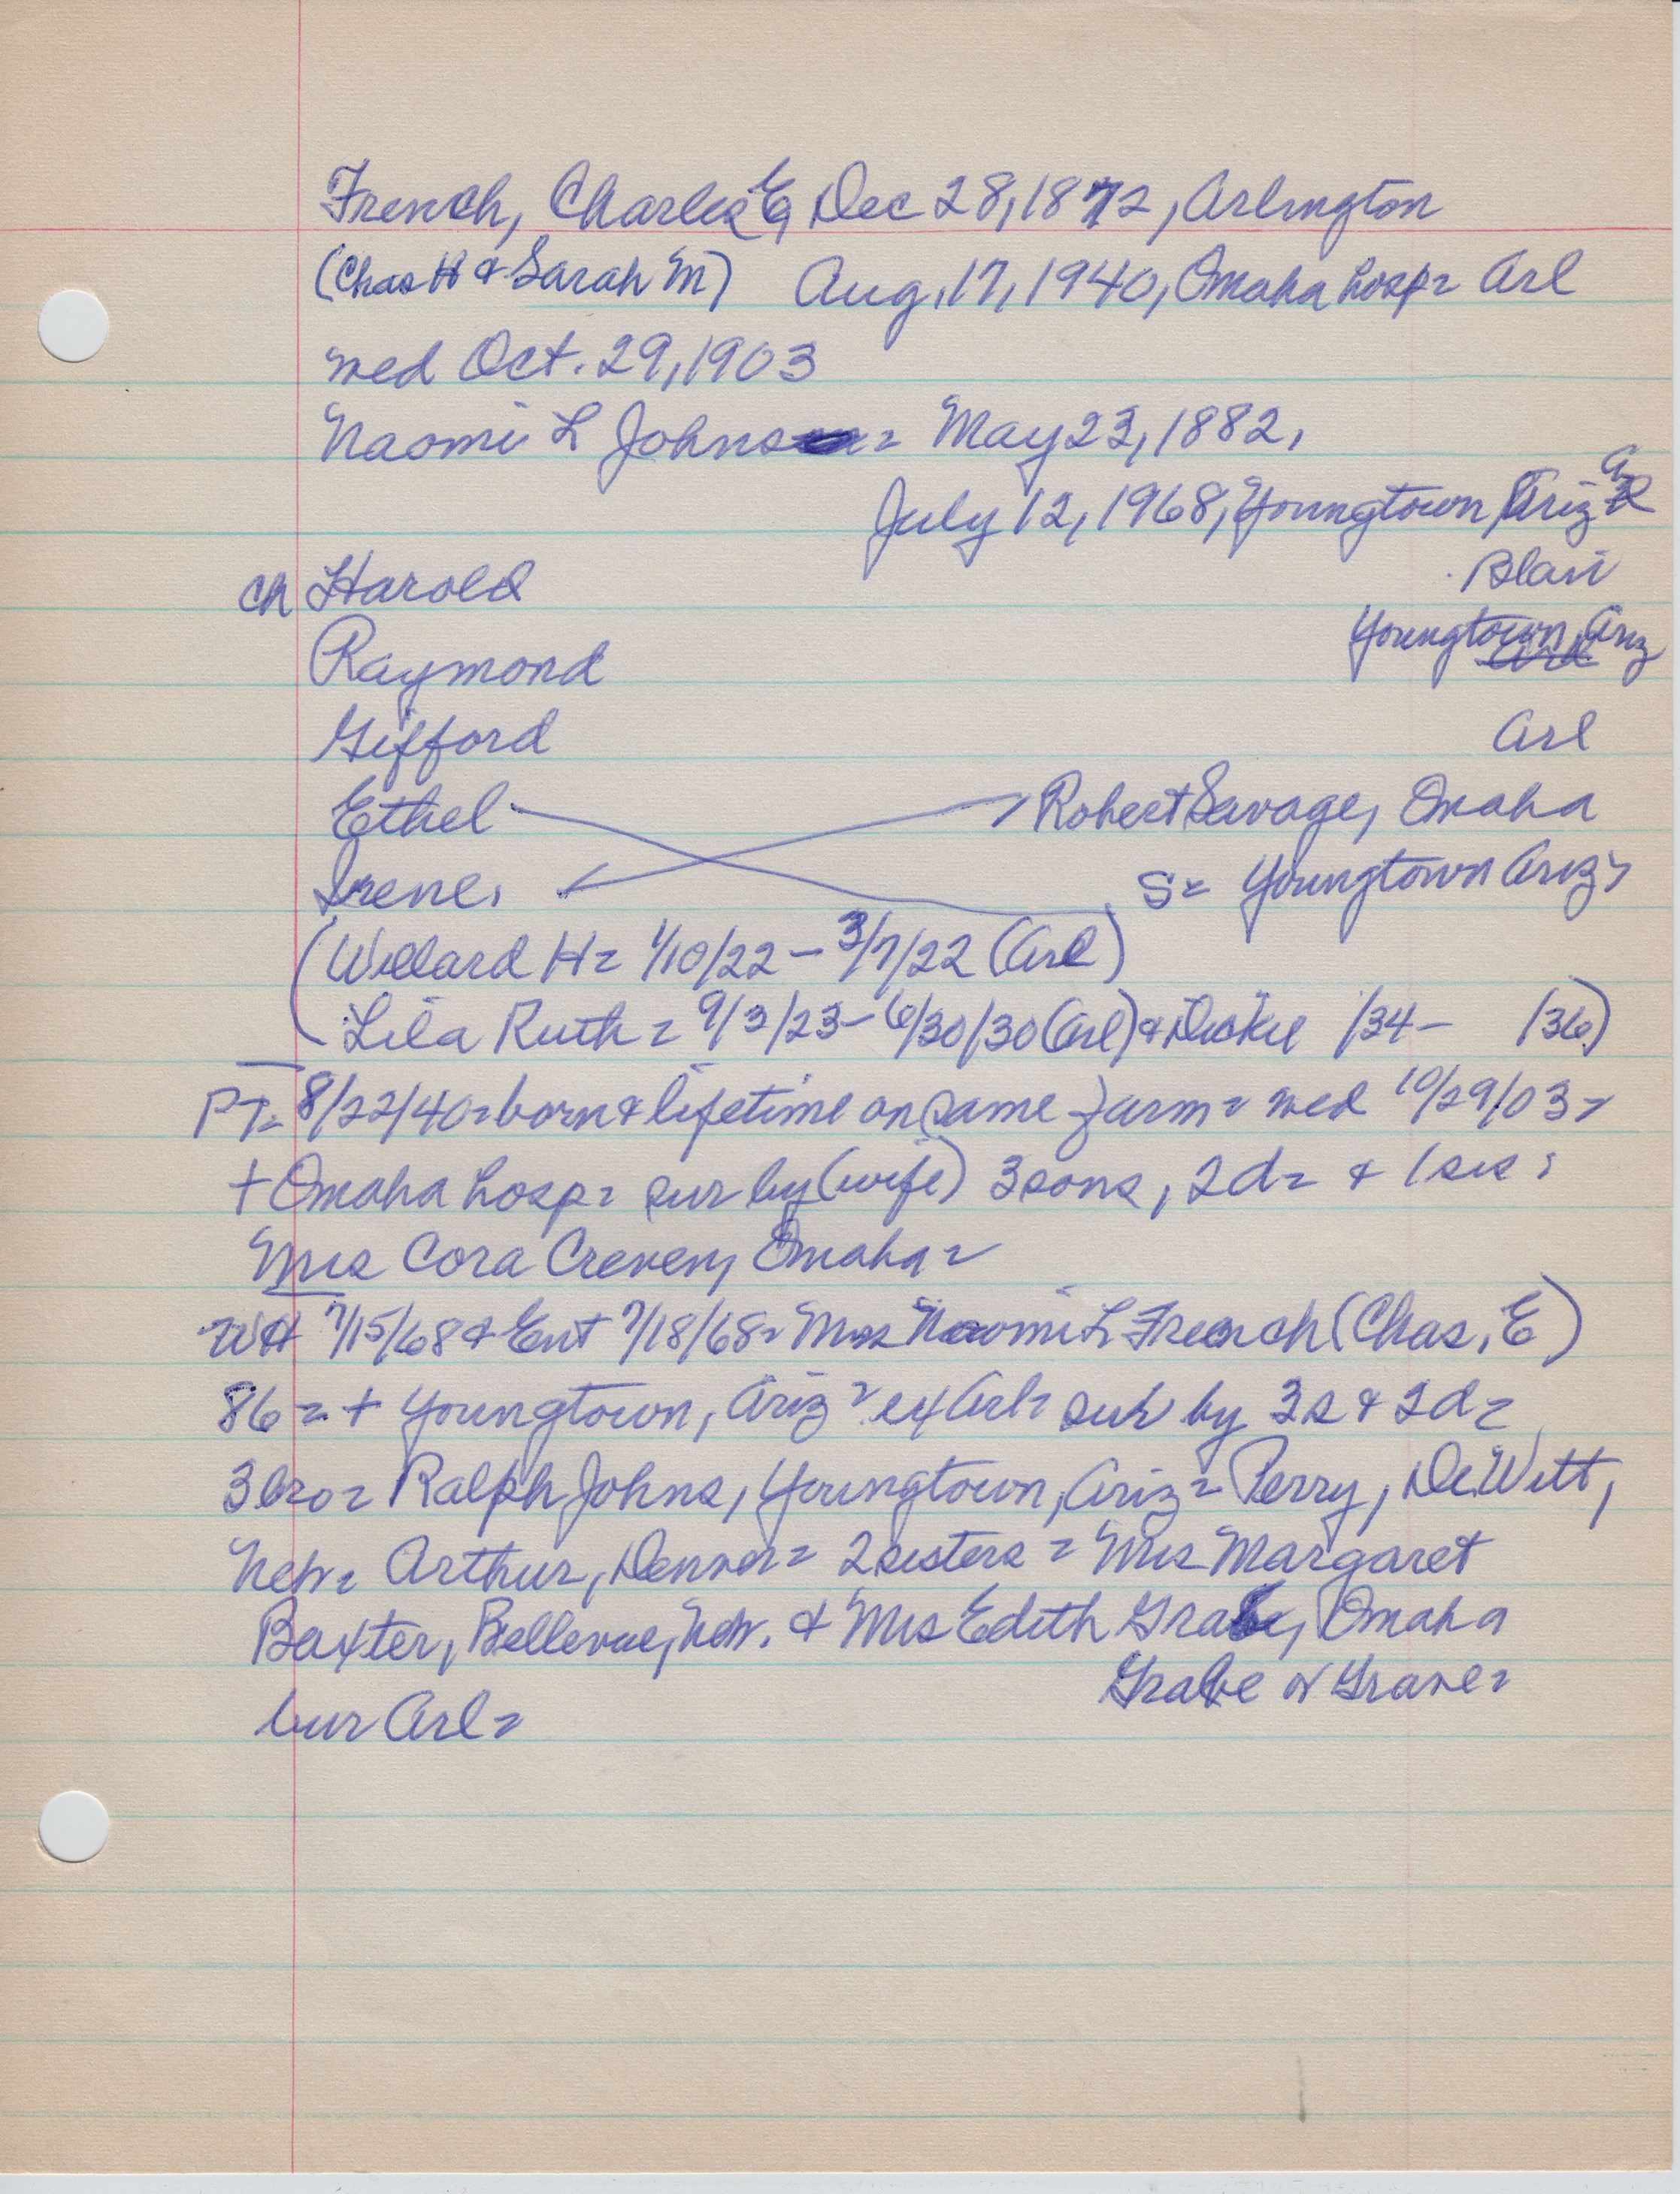 French, Charles E, Dec 28, 1872, Arlington
(Chas H & Sarah M) Aug. 17, 1940, Omaha hosp = Arl
wed Oct. 29, 1903
Naomi L Johns = May 23, 1882,
July 12, 1968, Youngtown, Ariz
ch Harold Blair
Raymond Youngtown, Ariz
Gifford Arl
Ethel Robert Savage, Omaha
Irene, S = Youngtown Ariz =
(Willard H = 1/10/22 - 3/7/22 (Arl)
Lila Ruth = 9/3/23 - 6/30/30 (Arl) & Dickie /34 - /36)
PT = 8/22/40 = born & lifetime on same farm = wed 10/29/03 =
+ Omaha hosp = sur by (wife) 3 sons, 2 d = & 1 sis :
Mrs Cora Creveny Omaha =
WH 7/15/68 & Ent 7/18/68 = Mrs Naomi L French (Chas, E)
86 = + Youngtown, Ariz = ex Arl = sur by 3 s & 2 d =
3 bro = Ralph Johns, Youngtown, Ariz = Perry, DeWitt,
Neb = Arthur, Denver = 2 sisters = Mrs Margaret
Baxter, Bellevue, Neb. & Mrs Edith Grabe, Omaha
Grabe or Grave =
bur Arl =